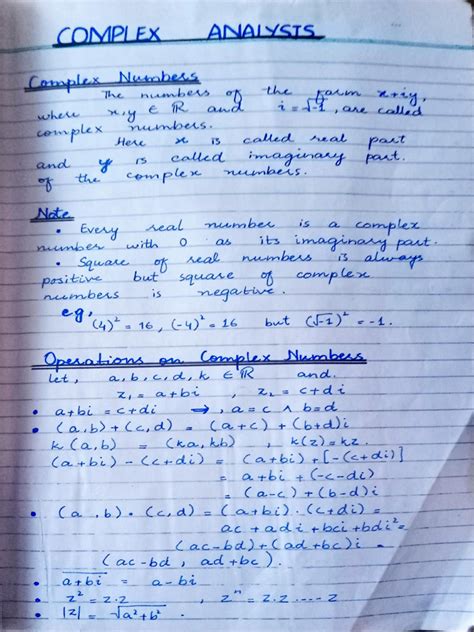 COMPLEX ANALYSIS
Complex Numbers
The numbers of the form x+iy,
where x,y ∈ ℝ and i = √-1, are called
complex numbers.
Here x is called real part
and y is called imaginary part.
of the complex numbers.
Note
• Every real number is a complex
number with 0 as its imaginary part.
• Square of real numbers is always
positive but square of complex
numbers is negative.
eg, (4)² = 16, (-4)² = 16 but (√-1)² = -1.
Operations on Complex Numbers
let, a,b,c,d,k ∈ ℝ and.
z₁ = a+bi, z₂ = c+di
• a+bi = c+di ⇒, a=c ∧ b=d
• (a,b)+(c,d) = (a+c) + (b+d)i
k(a,b) = (ka,kb), k(z)=kz.
(a+bi) - (c+di) = (a+bi) + [-(c+di)]
= a+bi + (-c-di)
= (a-c) + (b-d)i
• (a,b)·(c,d) = (a+bi)·(c+di) =
ac + adi + bci + bdi² =
(ac-bd)+(ad+bc)i =
(ac-bd, ad+bc).
• a̅+̅b̅i̅ = a-bi
• z² = z.z, zⁿ = z.z.....z
• |z| = √a²+b².